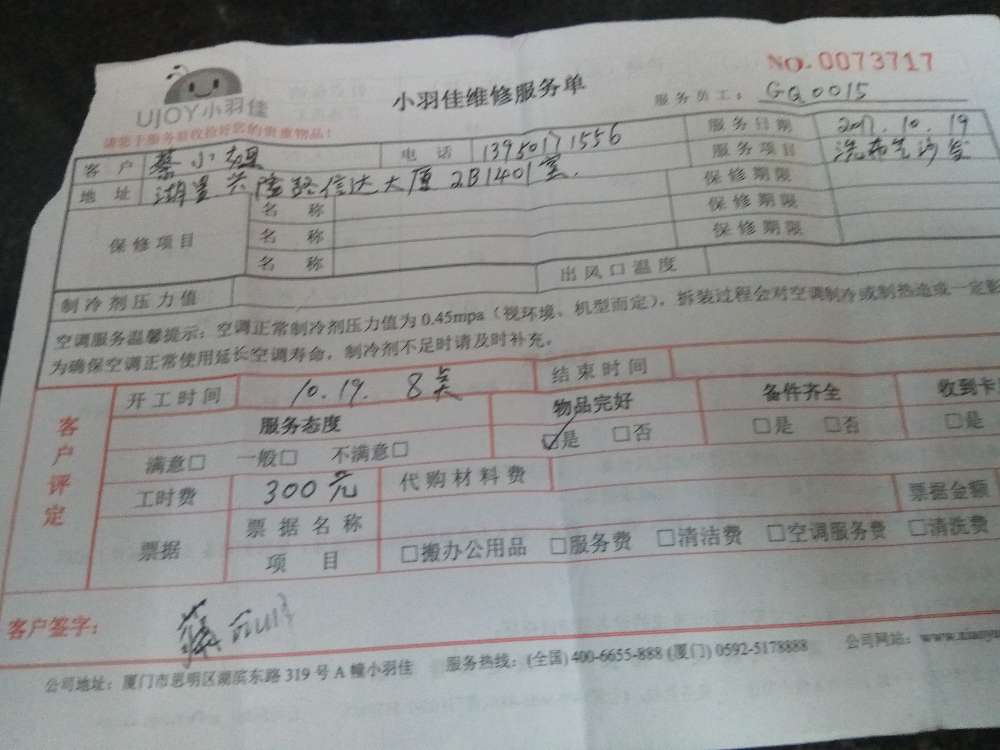 NO. 0073717
UJOY小羽佳
小羽佳维修服务单
服务员工：GQ0015
请您于服务前收捡好您的贵重物品！
客户 蔡小姐 电话 13950171556 服务日期 2017.10.19
地址 湖里兴隆路信达大厦2B1401室. 服务项目 洗布艺沙发
保修项目 名称 保修期限
名称 保修期限
名称 保修期限
制冷剂压力值 出风口温度
空调服务温馨提示：空调正常制冷剂压力值为0.45mpa（视环境、机型而定），拆装过程会对空调制冷或制热造成一定影
为确保空调正常使用延长空调寿命，制冷剂不足时请及时补充。
客户评定
开工时间 10.19. 8点 结束时间
服务态度 物品完好 备件齐全 收到卡
满意□ 一般□ 不满意□ ☑是 □否 □是 □否 □是
工时费 300元 代购材料费
票据 票据名称 票据金额
项目 □搬办公用品 □服务费 □清洁费 □空调服务费 □清洗费
客户签字： 蔡
公司地址：厦门市思明区湖滨东路319号A幢小羽佳 服务热线：(全国) 400-6655-888 (厦门) 0592-5178888 公司网站：www.xiaoyu